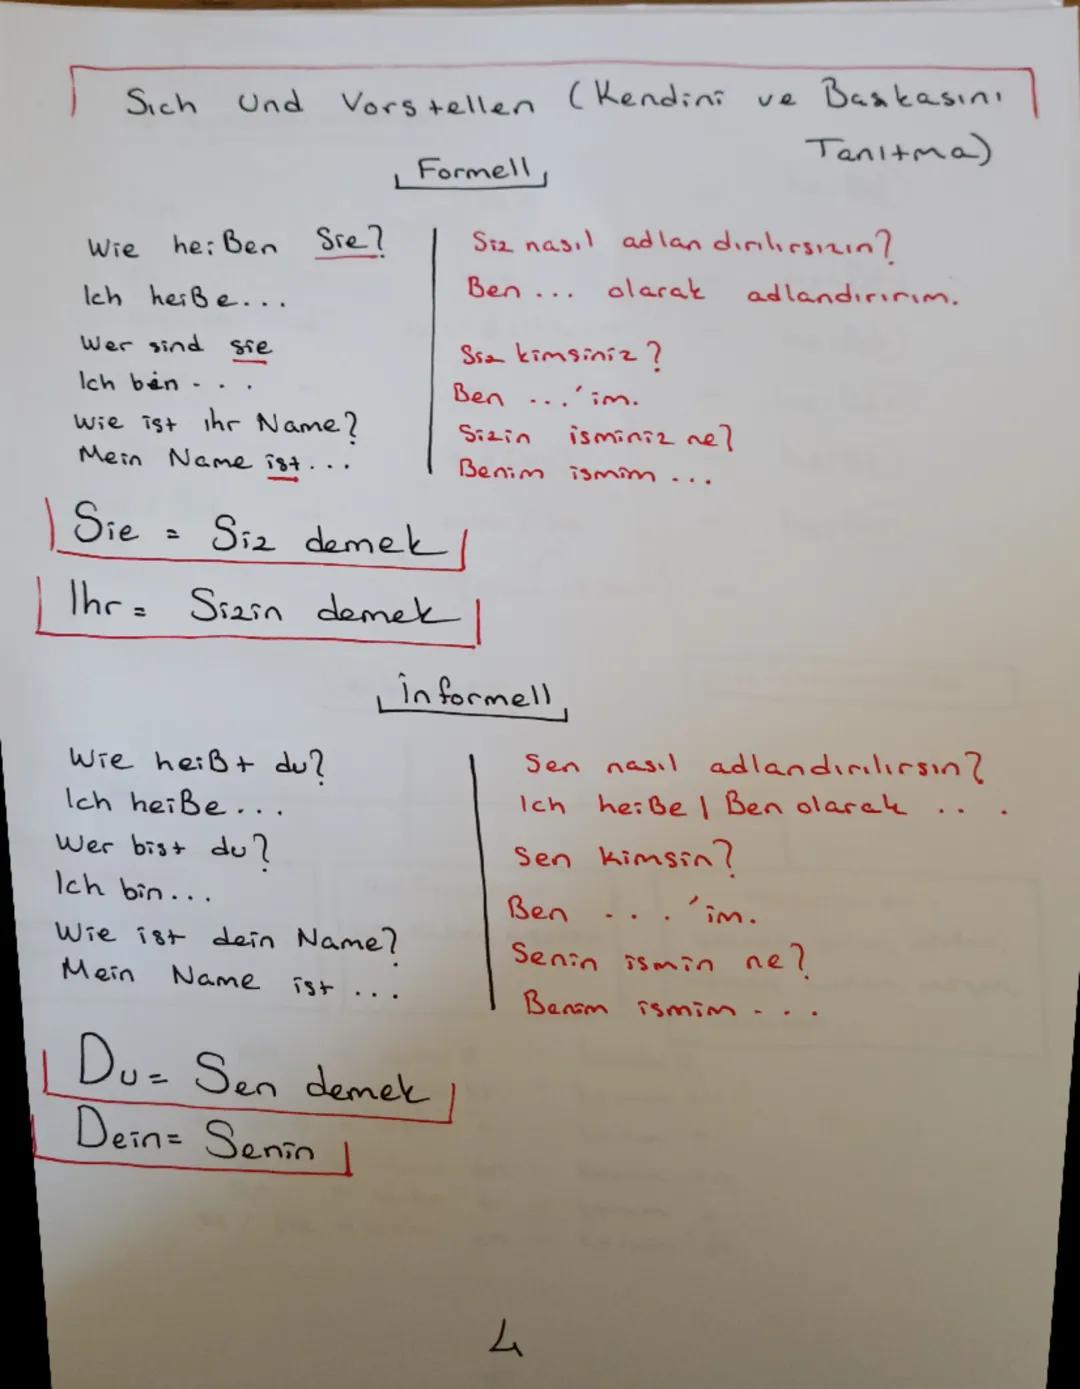 Sich und Vorstellen (Kendini ve Başkasını
Tanıtma)
Formell
Wie heißen Sie?
Ich heiße...
Wer sind sie
Ich bin...
Wie ist ihr Name?
Mein Name ist...
Siz nasıl adlandırılırsızın?
Ben ... olarak adlandırırım.
Siz kimsiniz?
Ben ...'im.
Sizin isminiz ne?
Benim ismim ...
Sie = Siz demek
Ihr = Sizin demek
informell
Wie heißt du?
Ich heiße...
Wer bist du?
Ich bin...
Wie ist dein Name?
Mein Name ist ...
Sen nasıl adlandırılırsın?
Ich heiße | Ben olarak ...
Sen kimsin?
Ben ...'im.
Senin ismin ne?
Benim ismim ...
Du = Sen demek
Dein = Senin
4